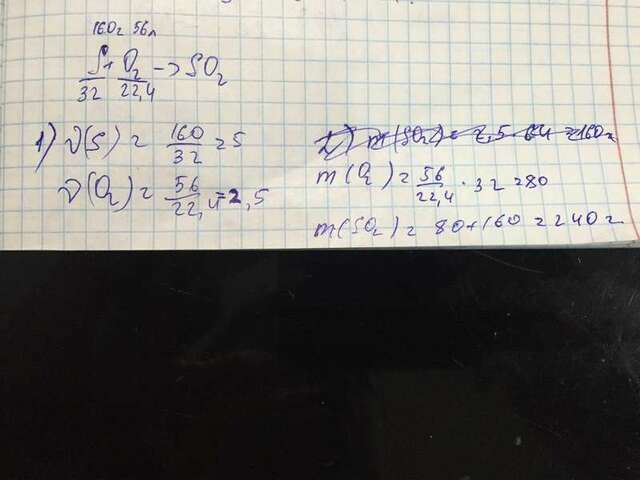 160г 56л
S + O₂ -> SO₂
32 22,4
1) ν(S) = 160/32 = 5
ν(O₂) = 56/22,4 = 2,5
2) m(SO₂) = 2,5 · 64 = 160г
m(O₂) = 56/22,4 · 32 = 80
m(SO₂) = 80+160 = 240г